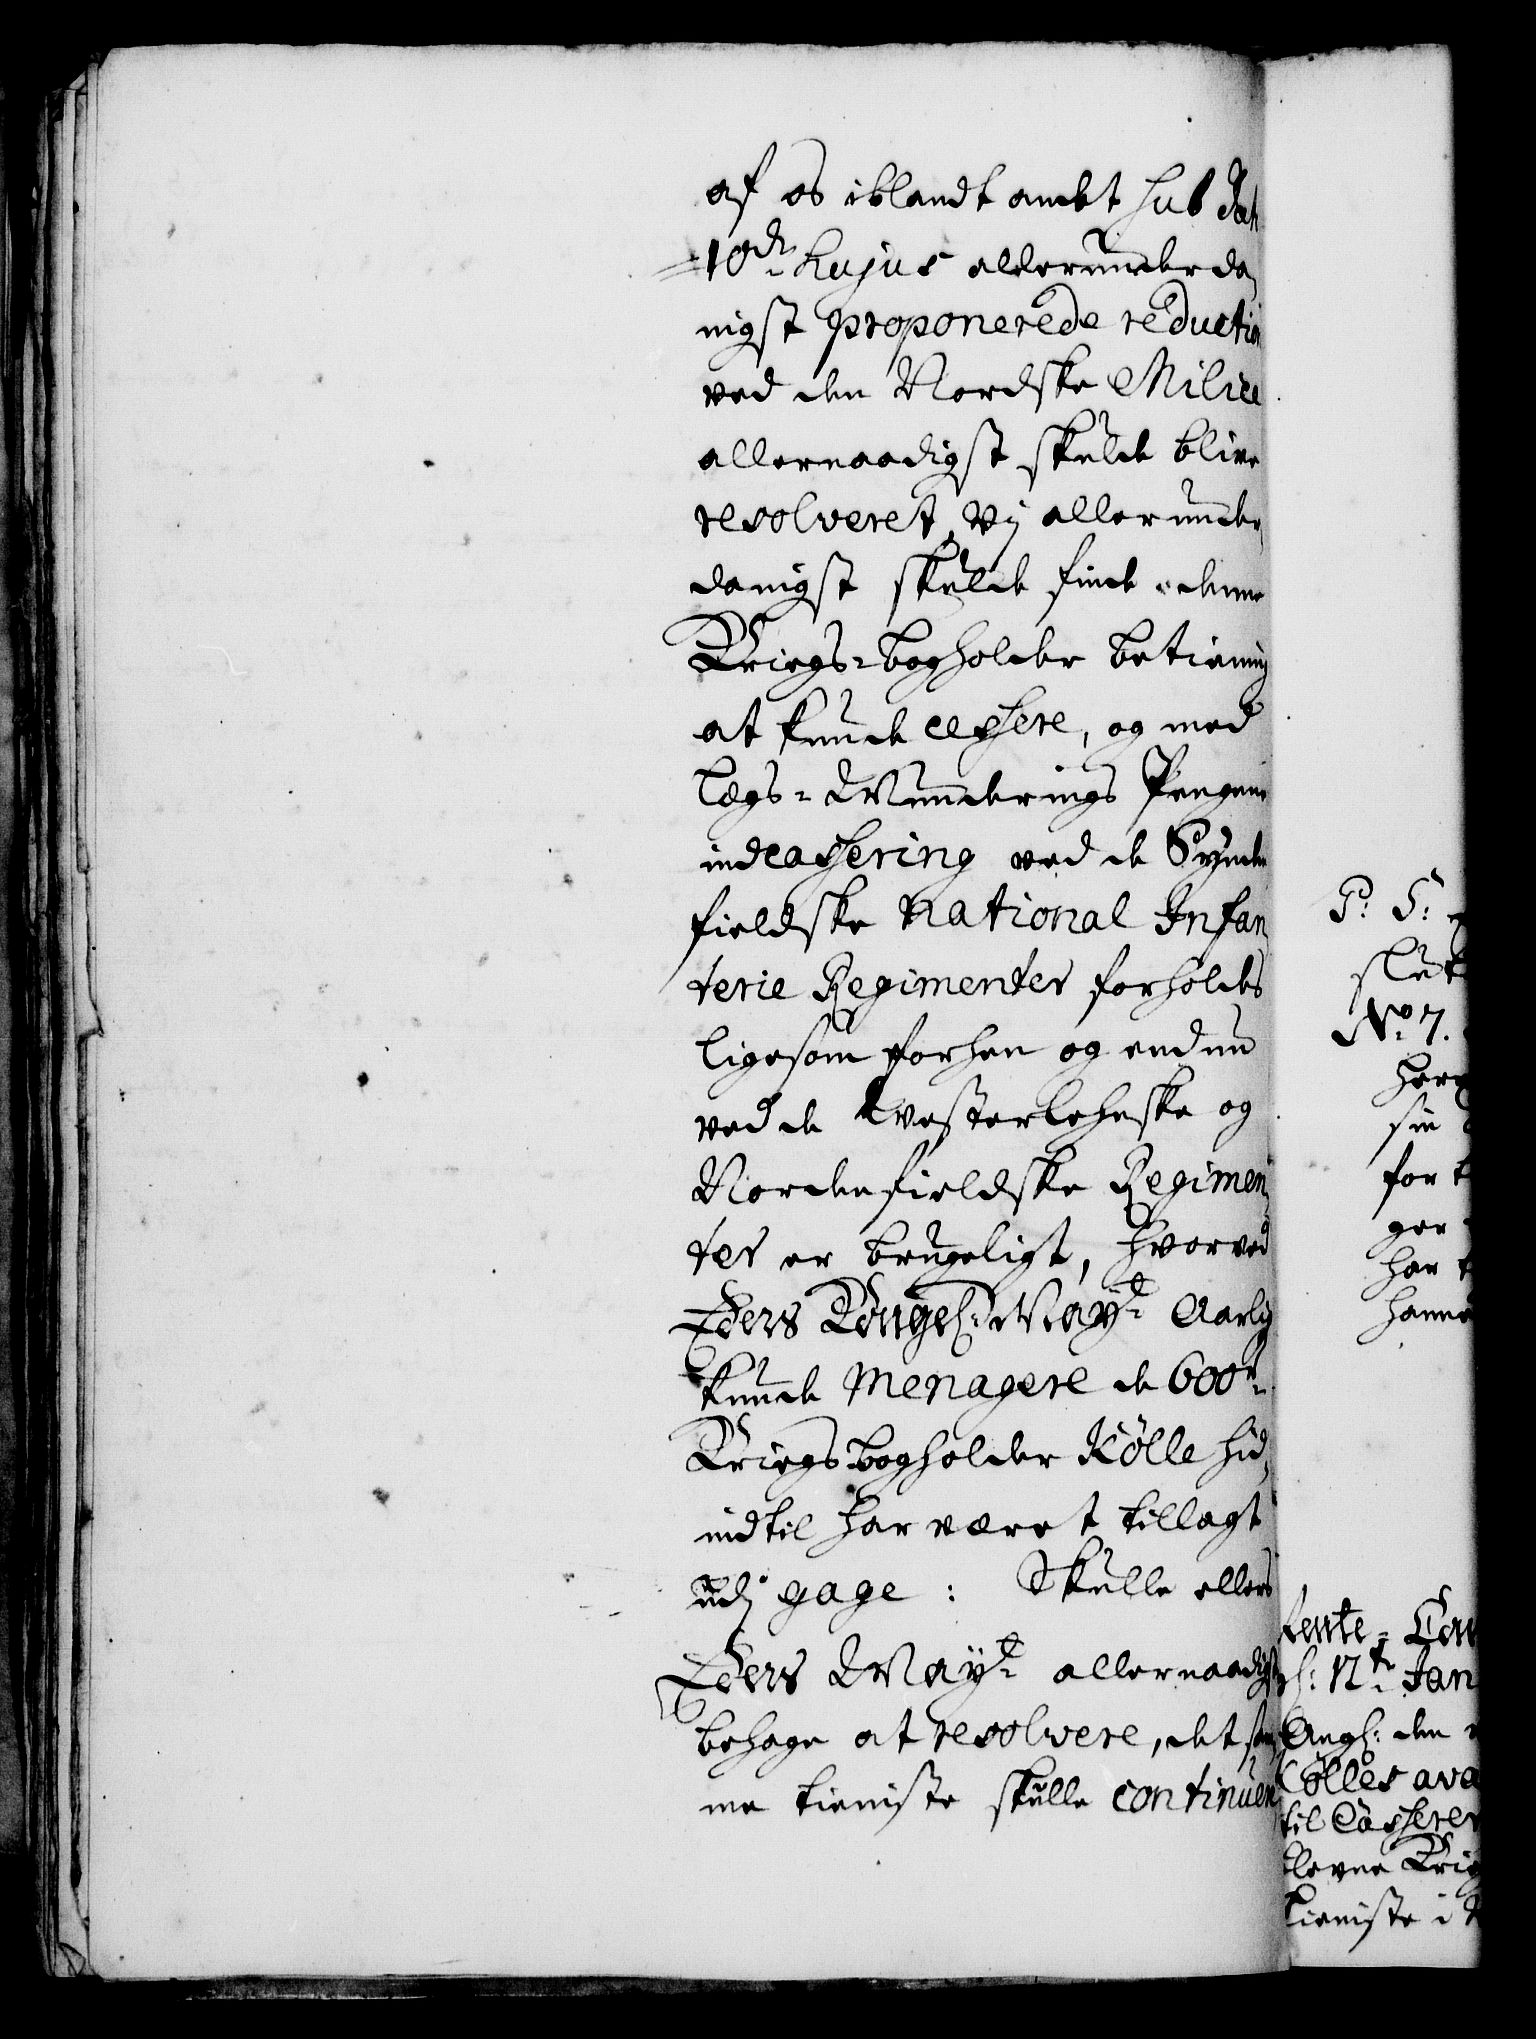 af os iblandt andet sub dat
10de hujus allerunderda-
nigst proponerede reduction
ved den Nordske Milice
allernaadigst skulde blive
resolveret, Vj allerunder-
danigst skulde finde denne
Kriegs-bogholder betiening
at kunde cessere, og med
Legs-Munderings Pengene
indcassering ved de Synden-
fieldske National Infan-
terie Regimenter forholdes
ligesom forhen og endnu
ved de Westerlehnske og
Nordenfieldske Regimen-
ter er brugeligt, hvorved
Eders Kongel: May:t Aarlig
kunde menagere de 600 r
Kriegsbogholder Kölle hid-
indtil har været tillagt
udj gage: Skulle ellers
Eders May:t allernaadigst
behage at resolvere, det sam-
me tieniste skulle continuere
P: S:
slut
No 7.
her
sin
for
ger
har
hanne
Rente-Cam
12te Jan
Angl: den
Kölles ava
til Casserer
blevne Krie
tieniste i